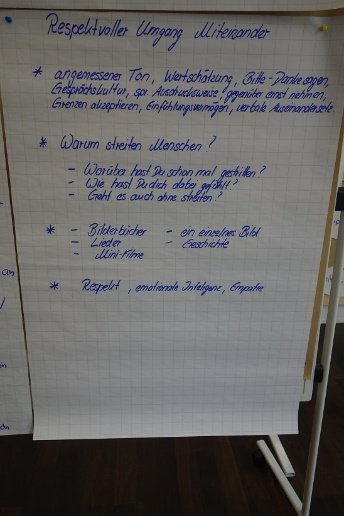 Respektvoller Umgang Miteinander
* angemessener Ton, Wertschätzung, Bitte-Danke sagen,
Gesprächskultur, spr. Ausdrucksweise, gegenüber ernst nehmen,
Grenzen akzeptieren, Einfühlungsvermögen, verbale
* Warum streiten Menschen?
- Worüber hast Du schon mal gestritten?
- Wie hast Du dich dabei gefühlt?
- Geht es auch ohne streiten?
* - Bilderbücher - ein einzelnes Bild
- Lieder - Geschichte
- Mini-Filme
* Respekt, emotionale Intelligenz, Empatie
an